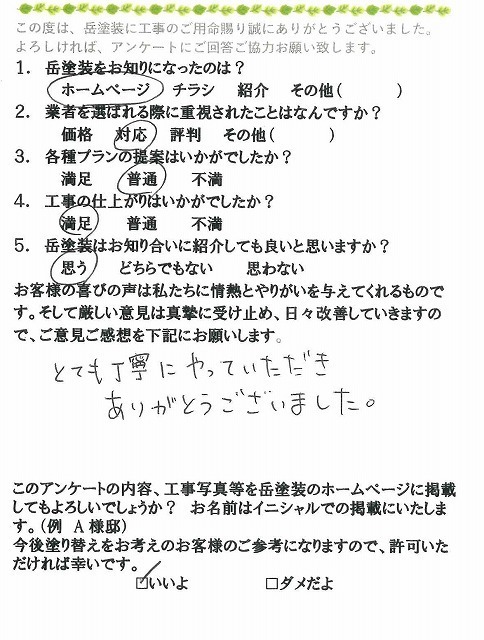 この度は、岳塗装に工事のご用命賜り誠にありがとうございました。
よろしければ、アンケートにご回答ご協力お願い致します。
1. 岳塗装をお知りになったのは？
ホームページ チラシ 紹介 その他( )
2. 業者を選ばれる際に重視されたことはなんですか？
価格 対応 評判 その他( )
3. 各種プランの提案はいかがでしたか？
満足 普通 不満
4. 工事の仕上がりはいかがでしたか？
満足 普通 不満
5. 岳塗装はお知り合いに紹介しても良いと思いますか？
思う どちらでもない 思わない
お客様の喜びの声は私たちに情熱とやりがいを与えてくれるもので
す。そして厳しい意見は真摯に受け止め、日々改善していきますの
で、ご意見ご感想を下記にお願いします。
とても丁寧にやっていただき
ありがとうございました。
このアンケートの内容、工事写真等を岳塗装のホームページに掲載
してもよろしいでしょうか？ お名前はイニシャルでの掲載にいたしま
す。(例 A 様邸)
今後塗り替えをお考えのお客様のご参考になりますので、許可いた
だければ幸いです。
☑いいよ □ダメだよ